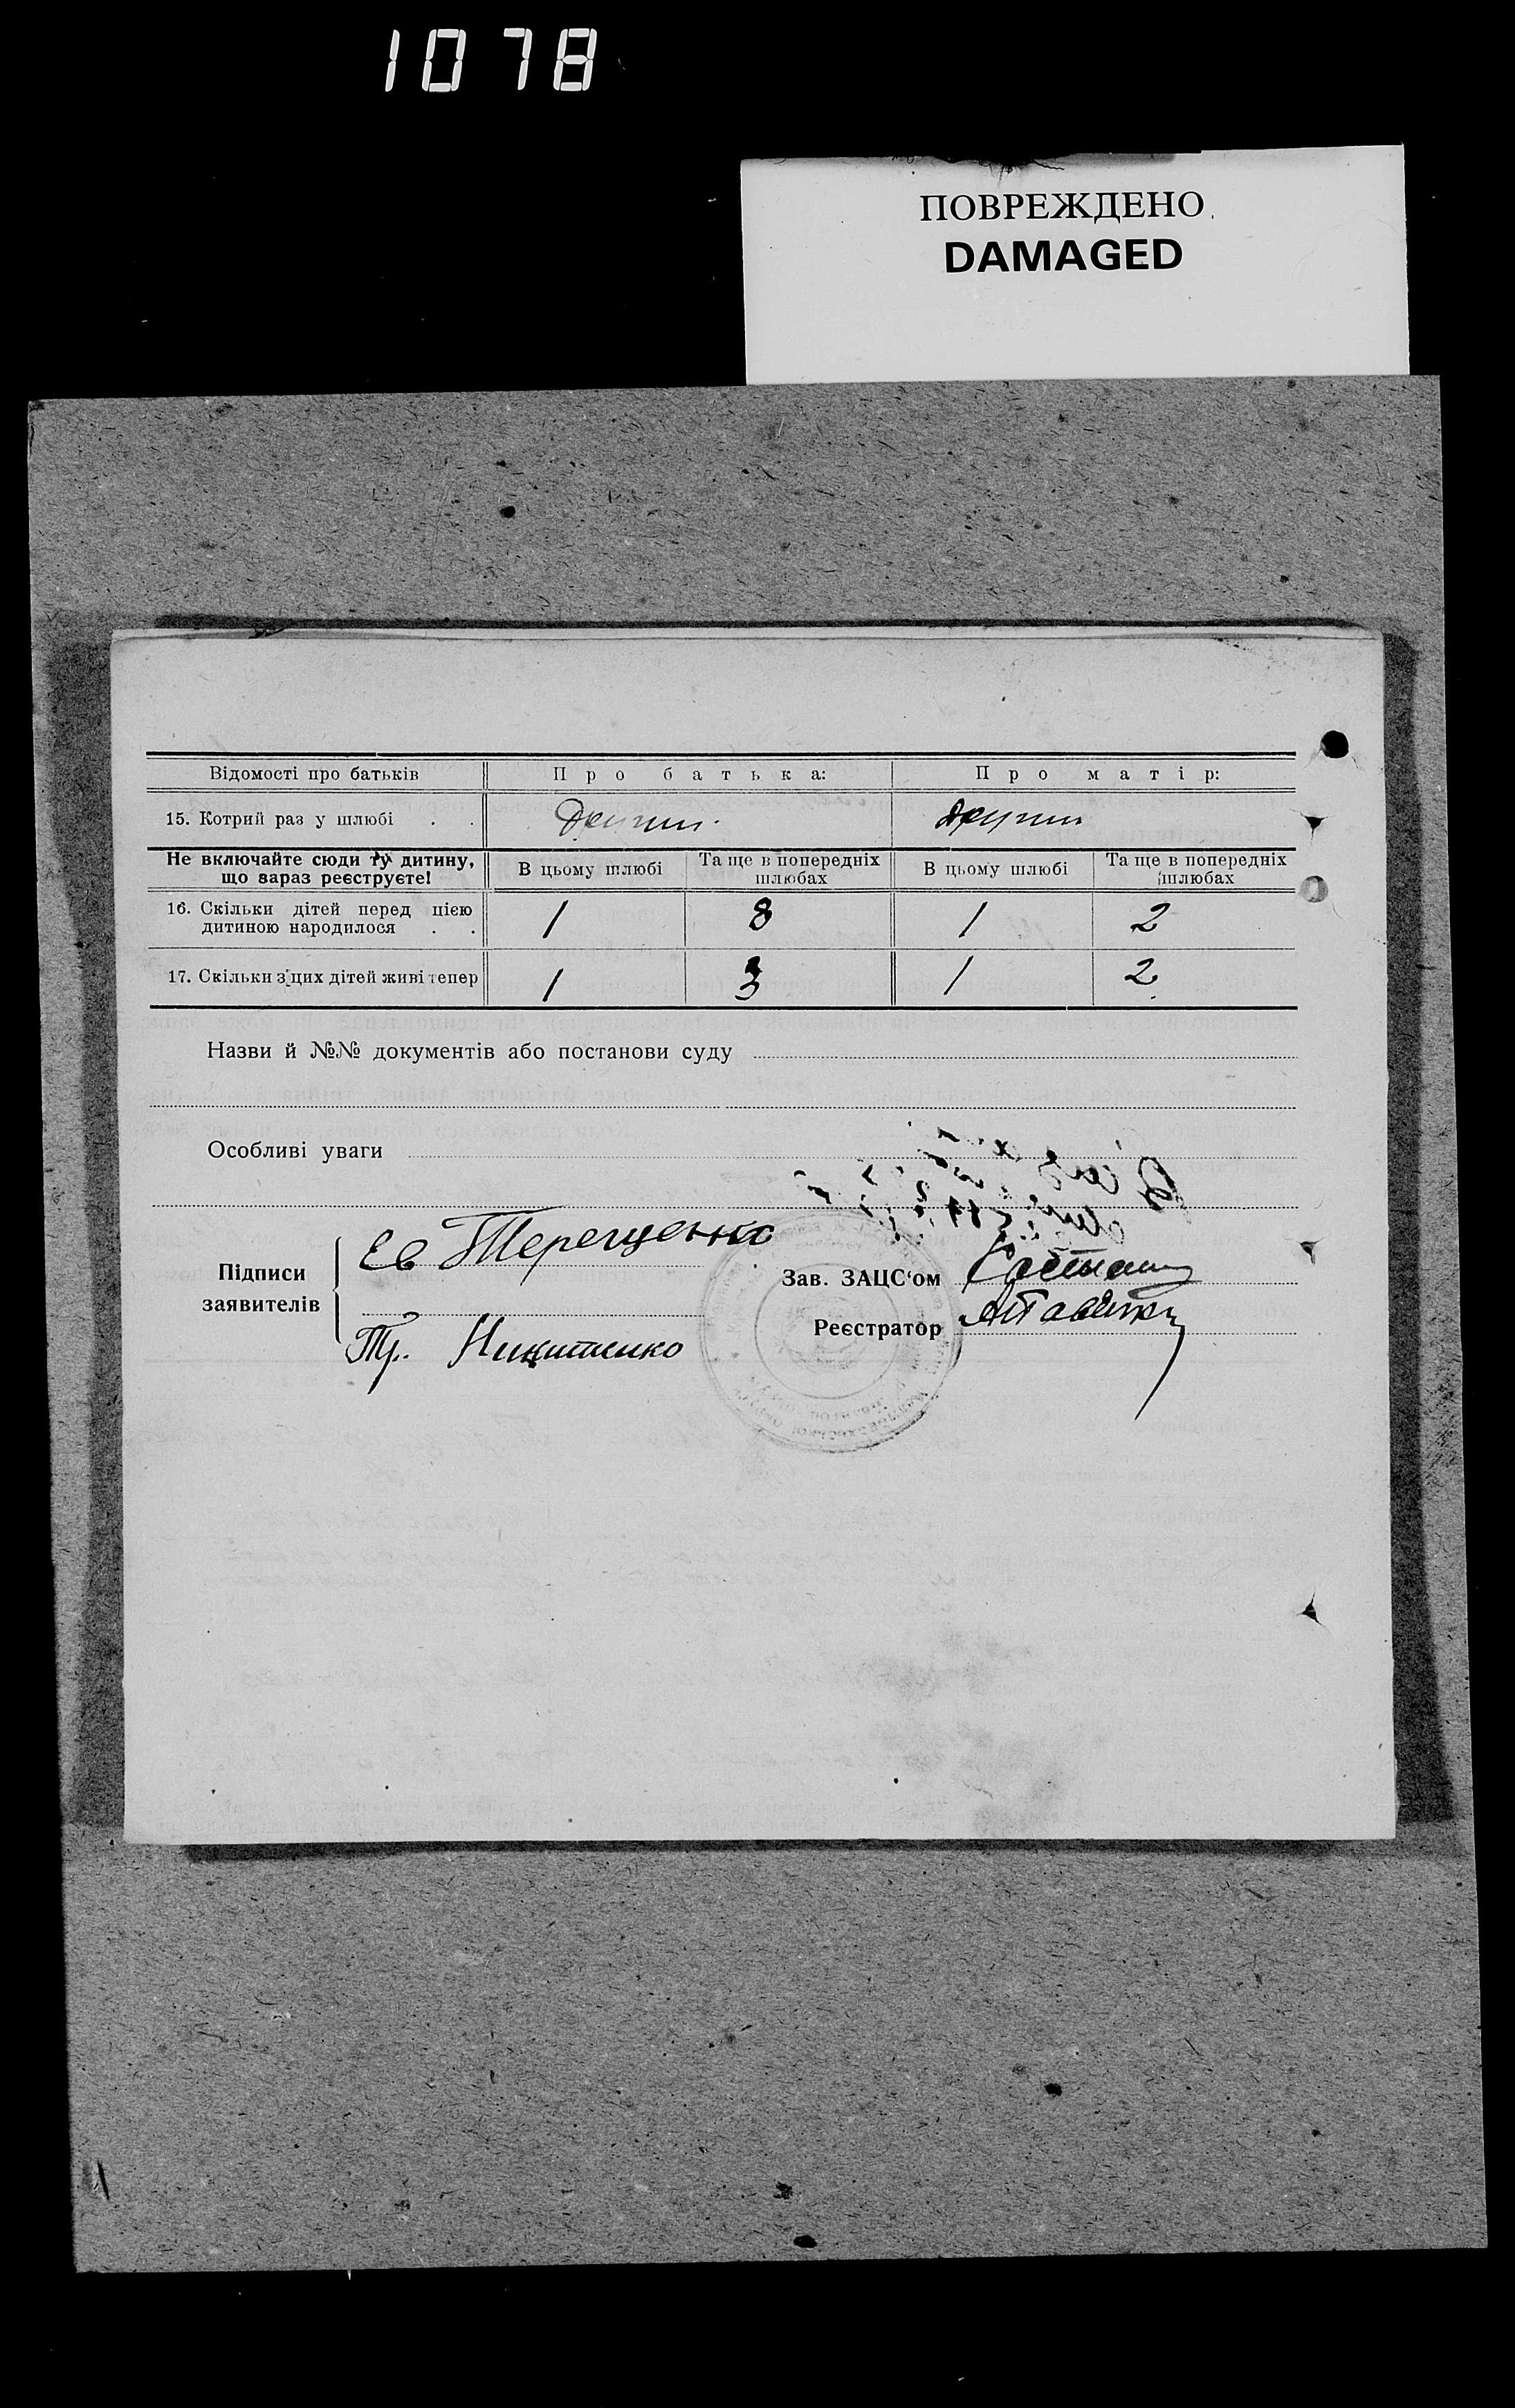 1078
ПОВРЕЖДЕНО
DAMAGED
Відомості про батьків Про батька: Про матір:
15. Котрий раз у шлюбі . . Другий Другий
Не включайте сюди ту дитину, що вараз реєструєте! В цьому шлюбі Та ще в попередніх шлюбах В цьому шлюбі Та ще в попередніх шлюбах
16. Скільки дітей перед цією дитиною народилося . . 1 8 1 2
17. Скільки з цих дітей живі тепер 1 3 1 2
Назви й №№ документів або постанови суду
Особливі уваги
Підписи заявителів
Ев Терещенко
Тр. Никитенко
Зав. ЗАЦС‘ом
Реєстратор